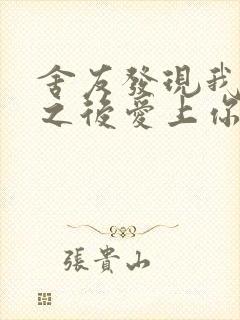 舍友發現我
之後愛上你
張貴山